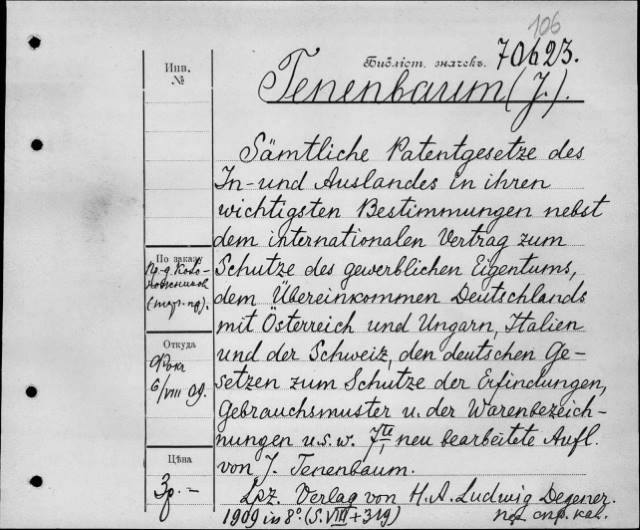 106
Библіот. значекъ. 70623.
Инв.
№
Tenenbaum (J.).
Sämtliche Patentgesetze des
In- und Auslandes in ihren
wichtigsten Bestimmungen nebst
dem internationalen Vertrag zum
По заказу
Schutze des gewerblichen Eigentums,
(тор. пр.).
dem Übereinkommen Deutschlands
mit Österreich und Ungarn, Italien
Откуда
und der Schweiz, den deutschen Ge-
Фокк
setzen zum Schutze der Erfindungen,
6/VIII 09.
Gebrauchsmuster u. der Warenbezeich-
nungen u.s.w. 7te, neu bearbeitete Aufl.
Цѣна
von J. Tenenbaum.
3р. -
Lpz. Verlag von H. A. Ludwig Degener.
1909 in 8° (S. VIII + 319)